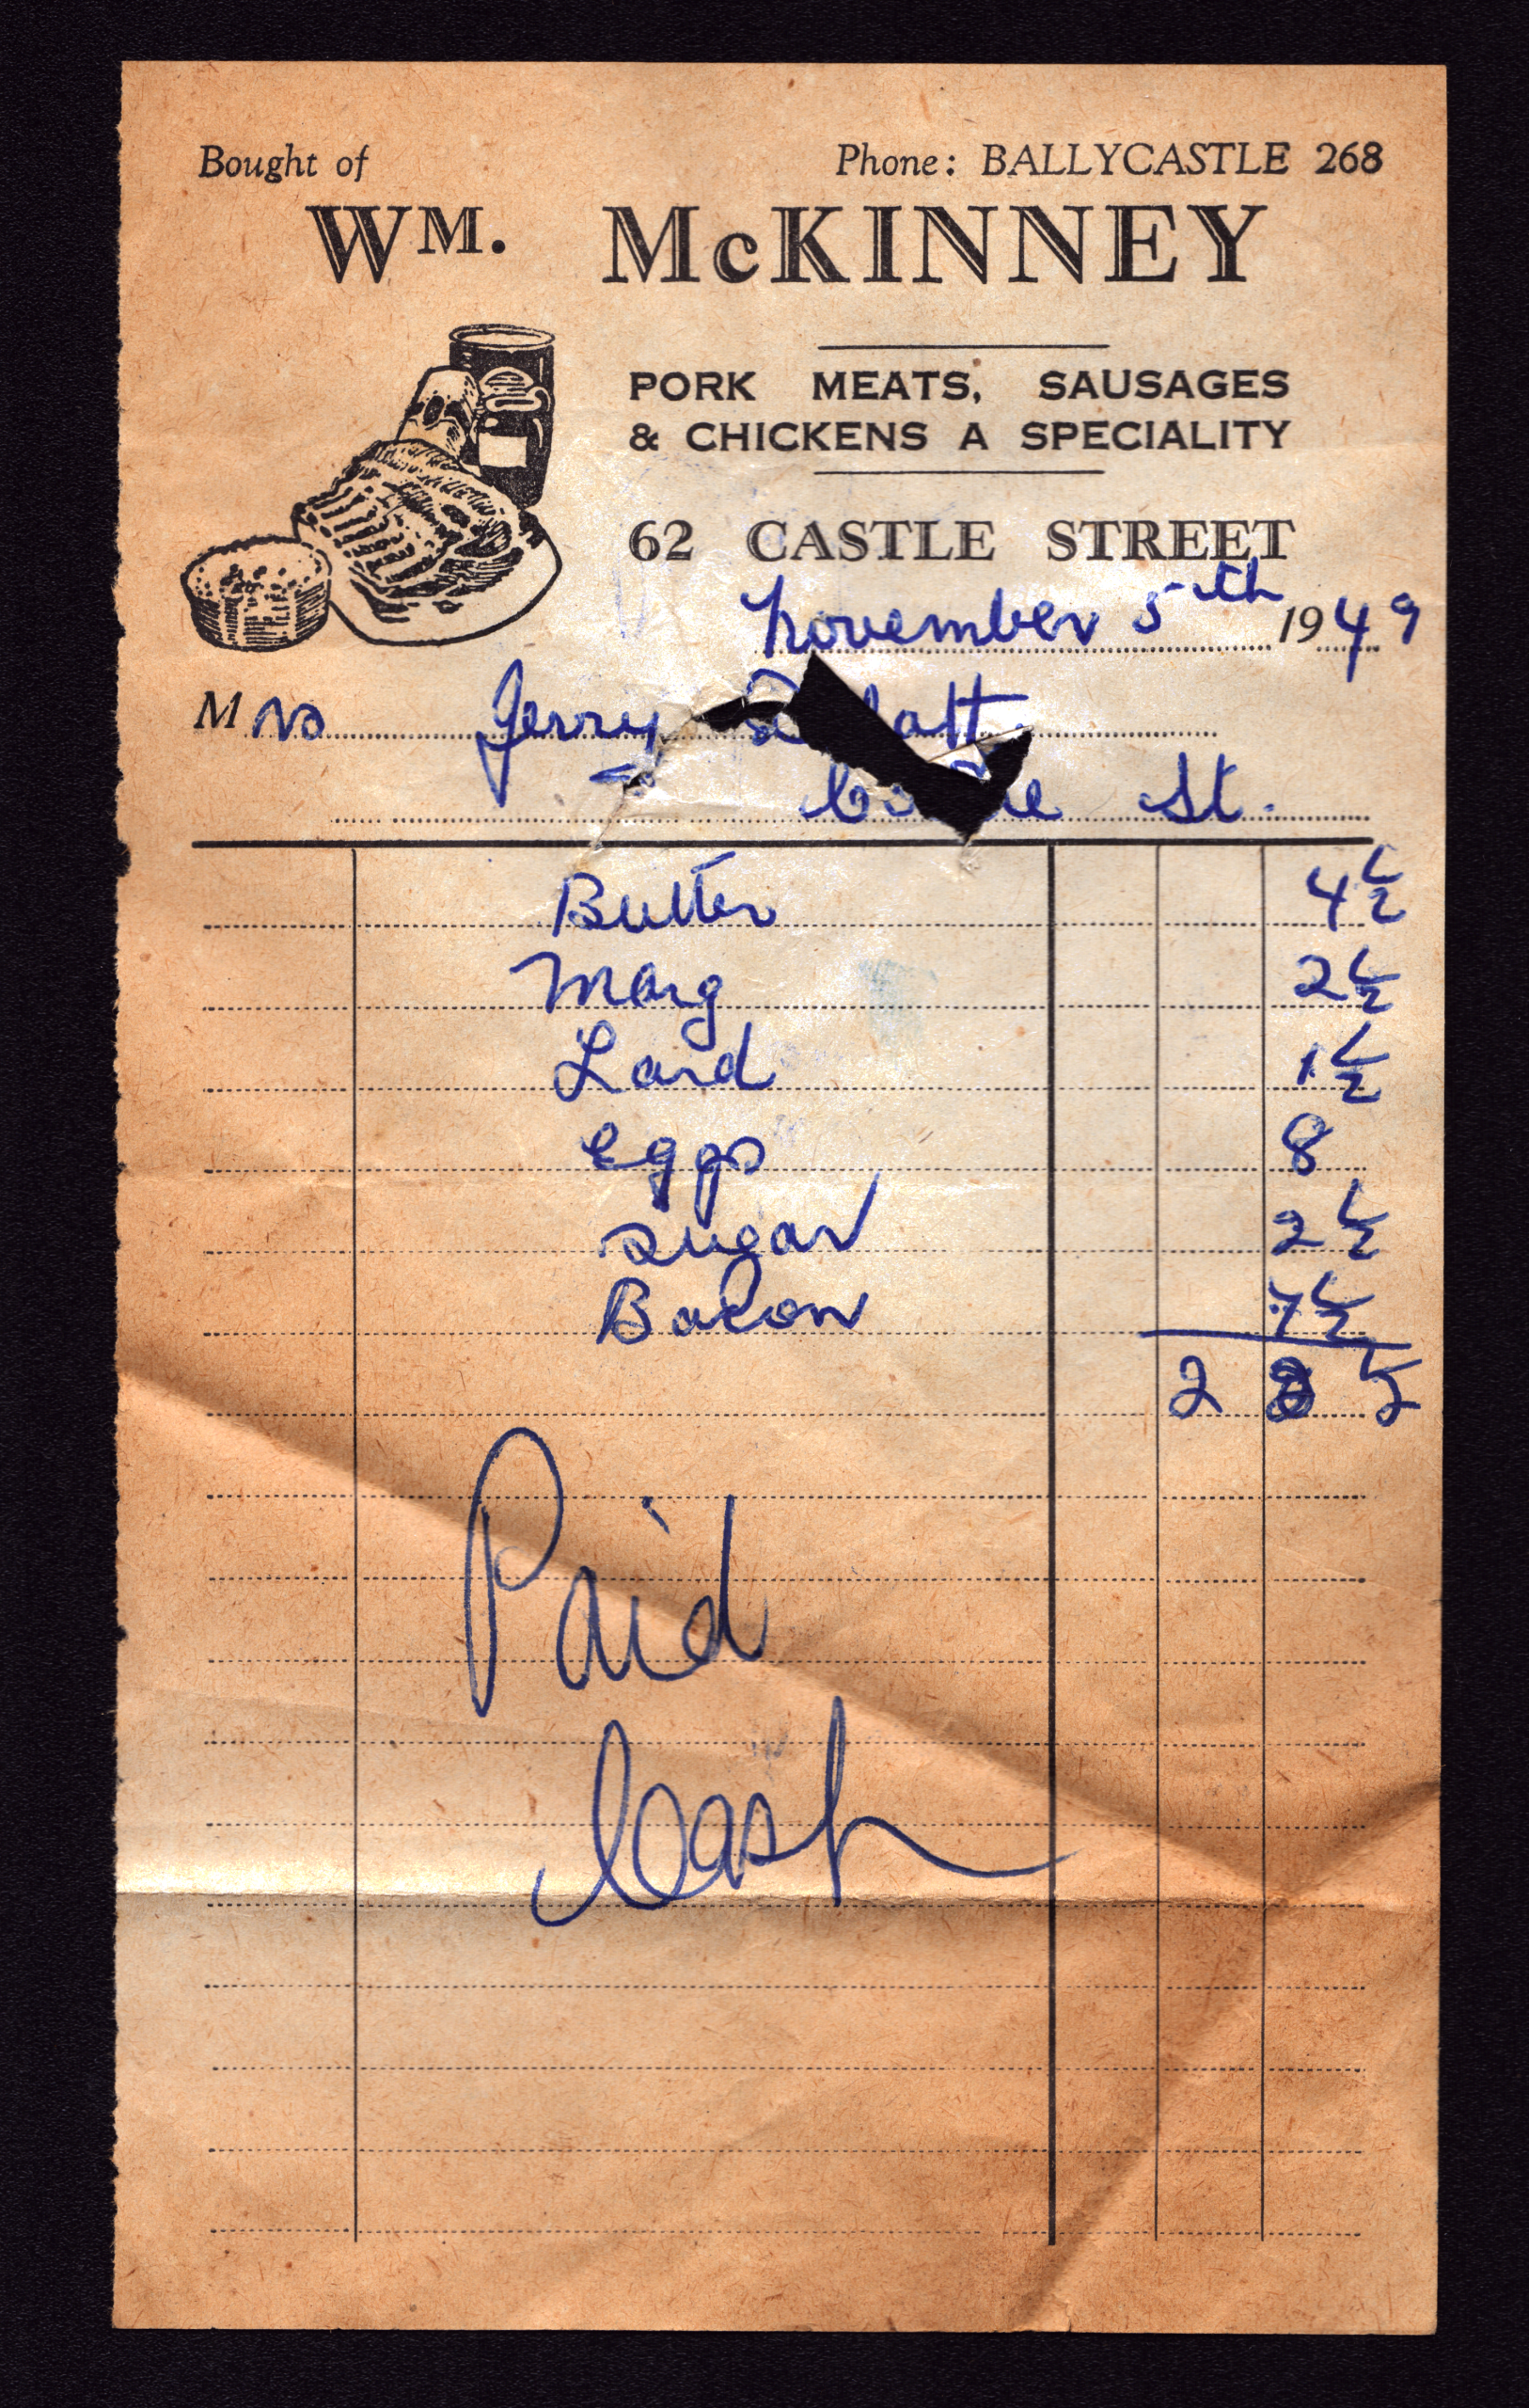 Bought of Phone: BALLYCASTLE 268
WM. McKINNEY
PORK MEATS, SAUSAGES
& CHICKENS A SPECIALITY
62 CASTLE STREET
November 5th 1949
Mrs Jerry
St.
Butter 4½
Marg 2½
Lard 1½
Eggs 8
Sugar 2½
Bacon 7½
2
Paid
Cash